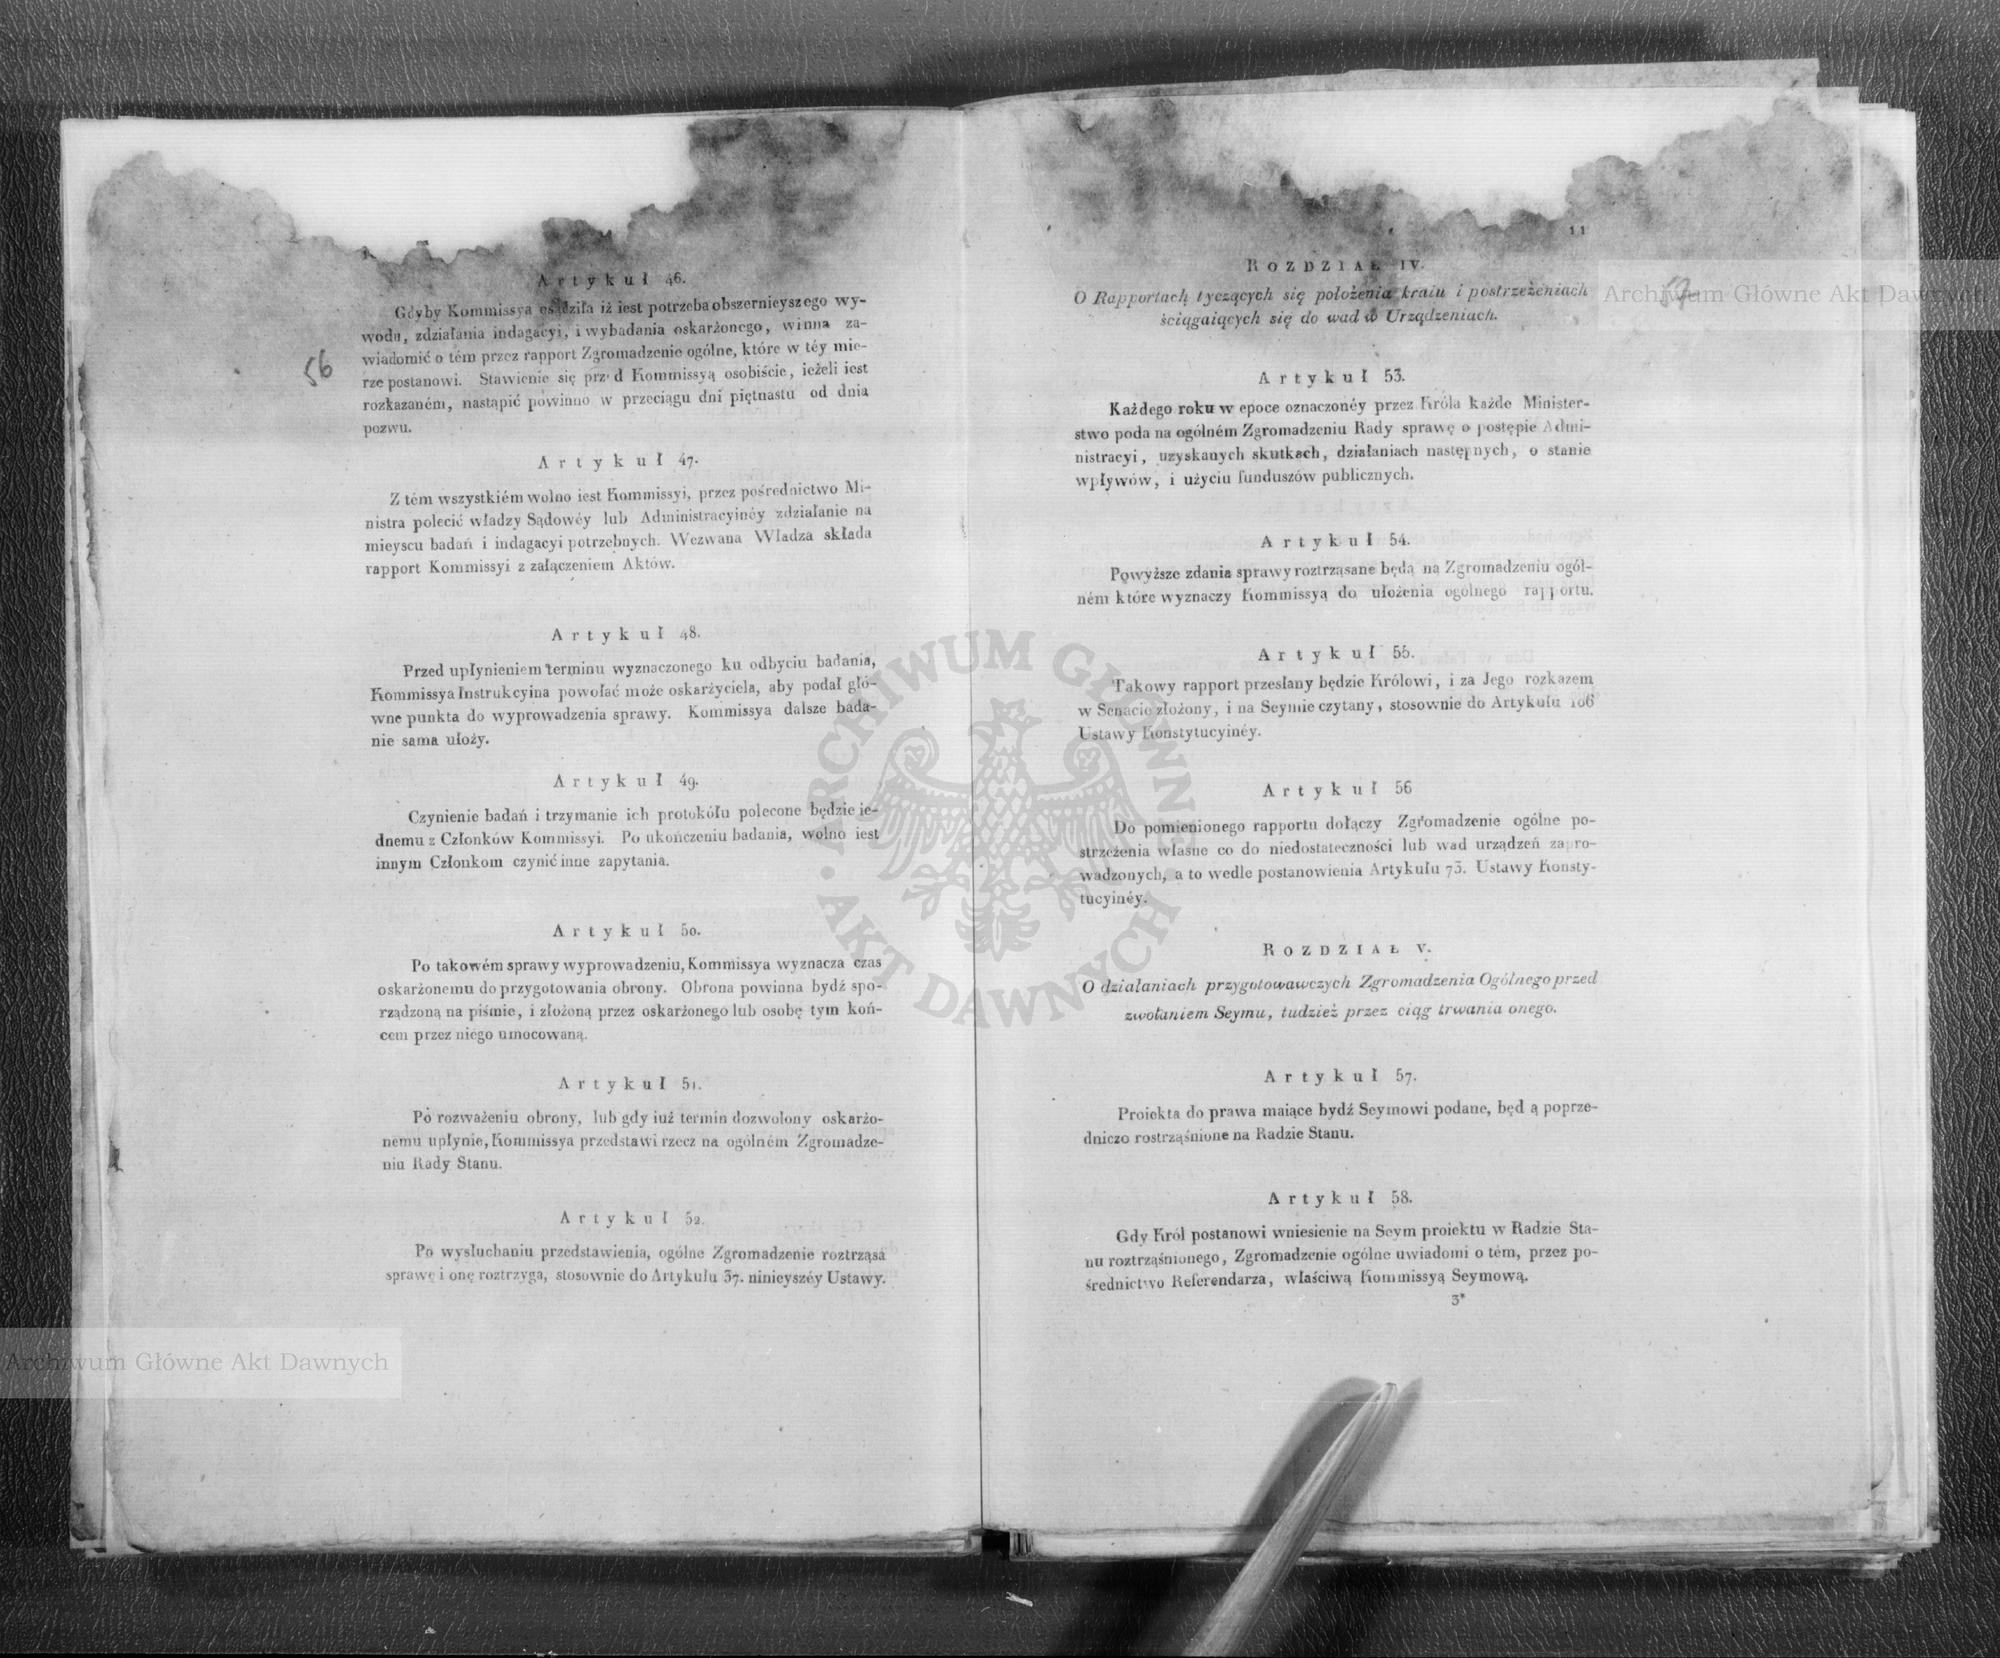 Artykuł 46.
Gdyby Kommissya osądziła iż iest potrzeba obszernieyszego wy-
wodu, zdziałania indagacyi, i wybadania oskarżonego, winna za-
wiadomić o tém przez rapport Zgromadzenie ogólne, które w téy mie-
rze postanowi. Stawienie się prz d Kommissyą osobiście, ieżeli iest
rozkazaném, nastąpić powinno w przeciągu dni piętnastu od dnia
pozwu.
56
Artykuł 47.
Z tém wszystkiém wolno iest Kommissyi, przez pośrednictwo Mi-
nistra polecić władzy Sądowéy lub Administracyinéy zdziałanie na
mieyscu badań i indagacyi potrzebnych. Wezwana Władza składa
rapport Kommissyi z załączeniem Aktów.
Artykuł 48.
Przed upłynieniem terminu wyznaczonego ku odbyciu badania,
Kommissya Instrukcyina powołać może oskarżyciela, aby podał głó-
wne punkta do wyprowadzenia sprawy. Kommissya dalsze bada-
nie sama ułoży.
Artykuł 49.
Czynienie badań i trzymanie ich protokółu polecone będzie ie-
dnemu z Członków Kommissyi. Po ukończeniu badania, wolno iest
innym Członkom czynić inne zapytania.
Artykuł 50.
Po takowém sprawy wyprowadzeniu, Kommissya wyznacza czas
oskarżonemu do przygotowania obrony. Obrona powinna bydź spo-
rządzoną na piśmie, i złożoną przez oskarżonego lub osobę tym koń-
cem przez niego umocowaną.
Artykuł 51.
Po rozważeniu obrony, lub gdy iuż termin dozwolony oskarżo-
nemu upłynie, Kommissya przedstawi rzecz na ogólném Zgromadze-
niu Rady Stanu.
Artykuł 52.
Po wysłuchaniu przedstawienia, ogólne Zgromadzenie roztrząsa
sprawę i onę roztrzyga, stosownie do Artykułu 37. ninieyszéy Ustawy.
11
ROZDZIAŁ IV.
O Rapportach tyczących się położenia kraiu i postrzeżeniach
ściągaiących się do wad w Urządzeniach.
Artykuł 53.
Każdego roku w epoce oznaczonéy przez Króla każde Minister-
stwo poda na ogólném Zgromadzeniu Rady sprawę o postępie Admi-
nistracyi, uzyskanych skutkach, działaniach następnych, o stanie
wpływów, i użyciu funduszów publicznych.
Artykuł 54.
Powyższe zdania sprawy roztrząsane będą na Zgromadzeniu ogól-
ném które wyznaczy Kommissyą do ułożenia ogólnego rapportu.
Artykuł 55.
Takowy rapport przesłany będzie Królowi, i za Jego rozkazem
w Senacie złożony, i na Seymie czytany, stosownie do Artykułu 106
Ustawy Konstytucyinéy.
Artykuł 56
Do pomienionego rapportu dołączy Zgromadzenie ogólne po-
strzeżenia własne co do niedostateczności lub wad urządzeń zapro-
wadzonych, a to wedle postanowienia Artykułu 73. Ustawy Konsty-
tucyinéy.
ROZDZIAŁ V.
O działaniach przygotowawczych Zgromadzenia Ogólnego przed
zwołaniem Seymu, tudzież przez ciąg trwania onego.
Artykuł 57.
Proiekta do prawa maiące bydź Seymowi podane, będ ą poprze-
dniczo rostrząśnione na Radzie Stanu.
Artykuł 58.
Gdy Król postanowi wniesienie na Seym proiektu w Radzie Sta-
nu roztrząśnionego, Zgromadzenie ogólne uwiadomi o tém, przez po-
średnictwo Referendarza, właściwą Kommissyą Seymową.
3*
Archiwum Główne Akt Dawnych
Archiwum Główne Akt Dawnych
ARCHIWUM GŁÓWNE
AKT DAWNYCH